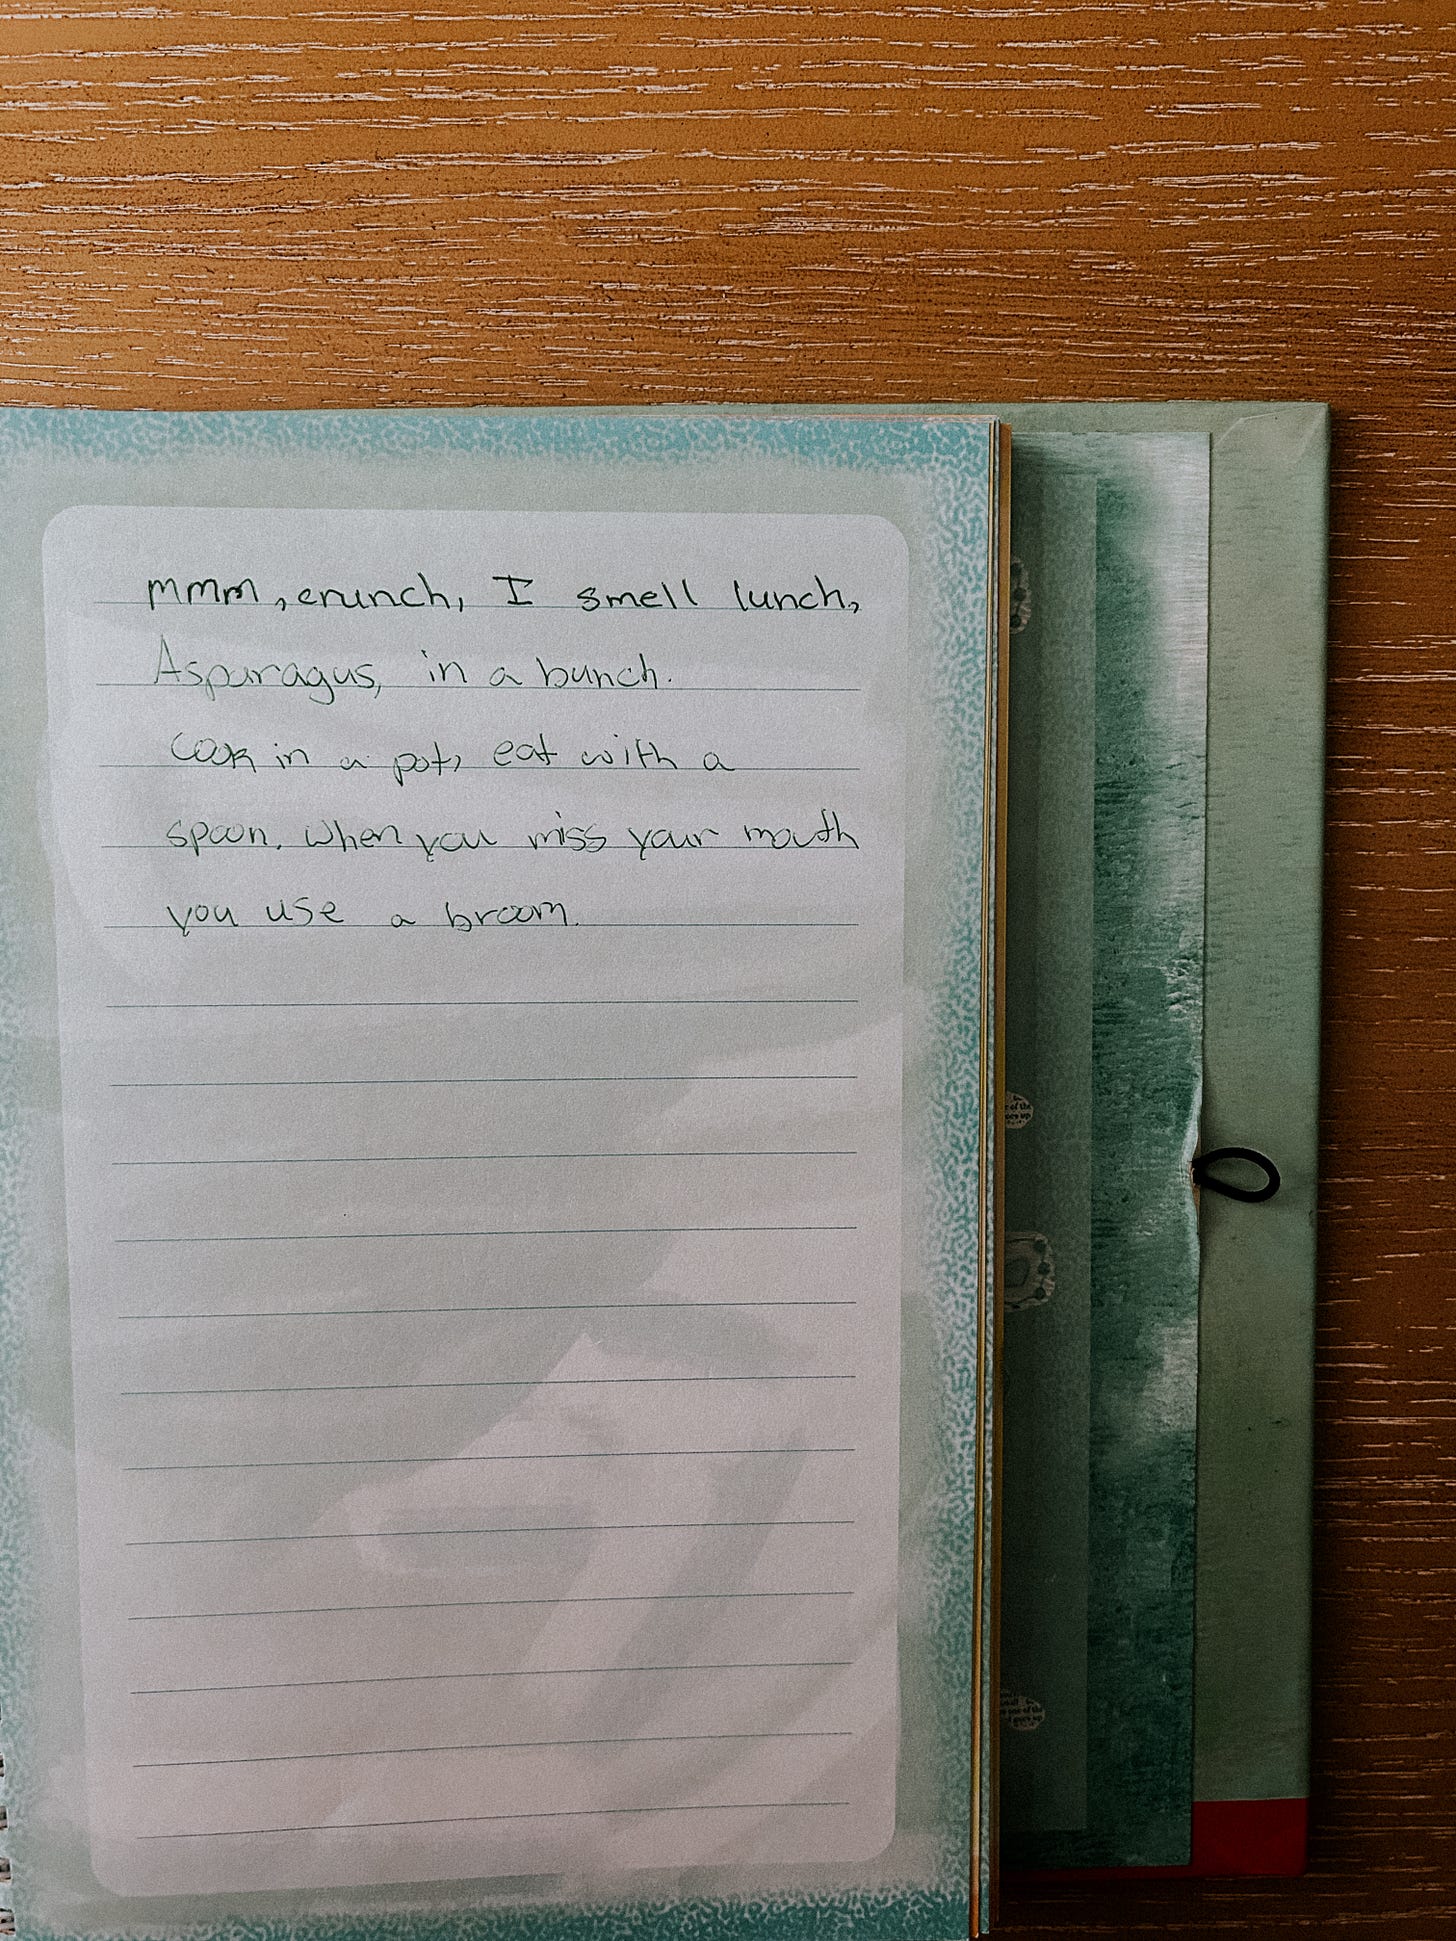 mmm, crunch, I smell lunch,
Asparagus, in a bunch.
Cook in a pot, eat with a
spoon. When you miss your mouth
you use a broom.